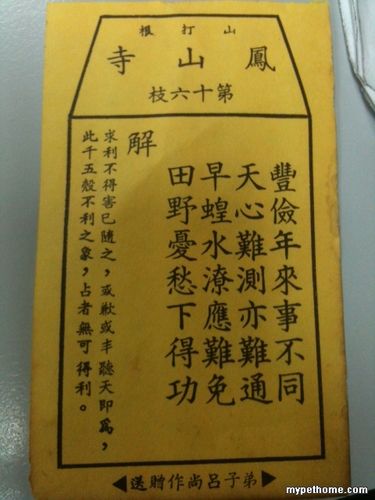 山打根
鳳山寺
第十六枝
豐儉年來事不同
天心難測亦難通
早蝗水潦應難免
田野憂愁下得功
解
求利不得害已隨之，或歉或丰聽天即為，
此千五殼不利之象，占者無可得利。
弟子呂尚作贈送
mypethome.com